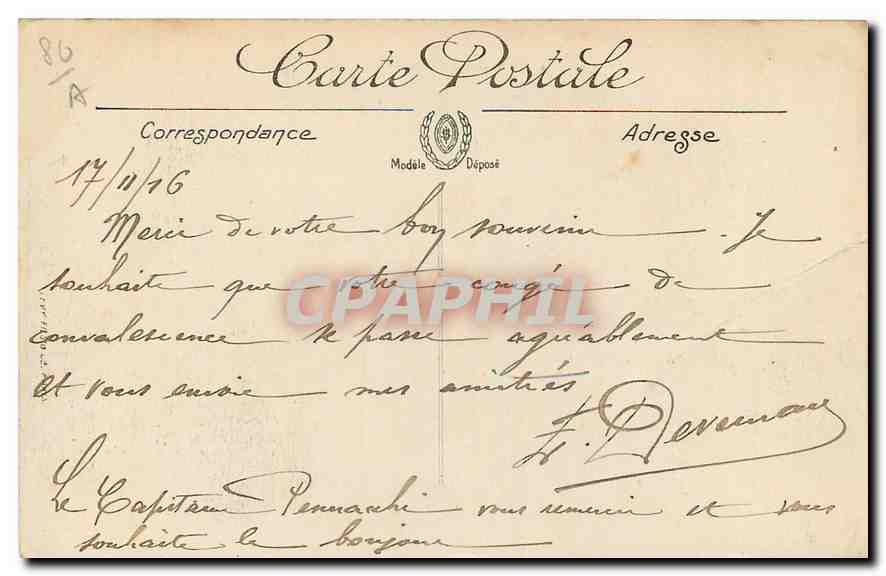 86
A
Carte Postale
Correspondance
Adresse
Modèle Déposé
17/11/16
Merci de votre bon souvenir. Je
souhaite que votre congé de
convalescence se passe agréablement
et vous envoie mes amitiés
CPAPHIL
Le Capitaine Pennachi vous remercie et vous
souhaite le bonjour